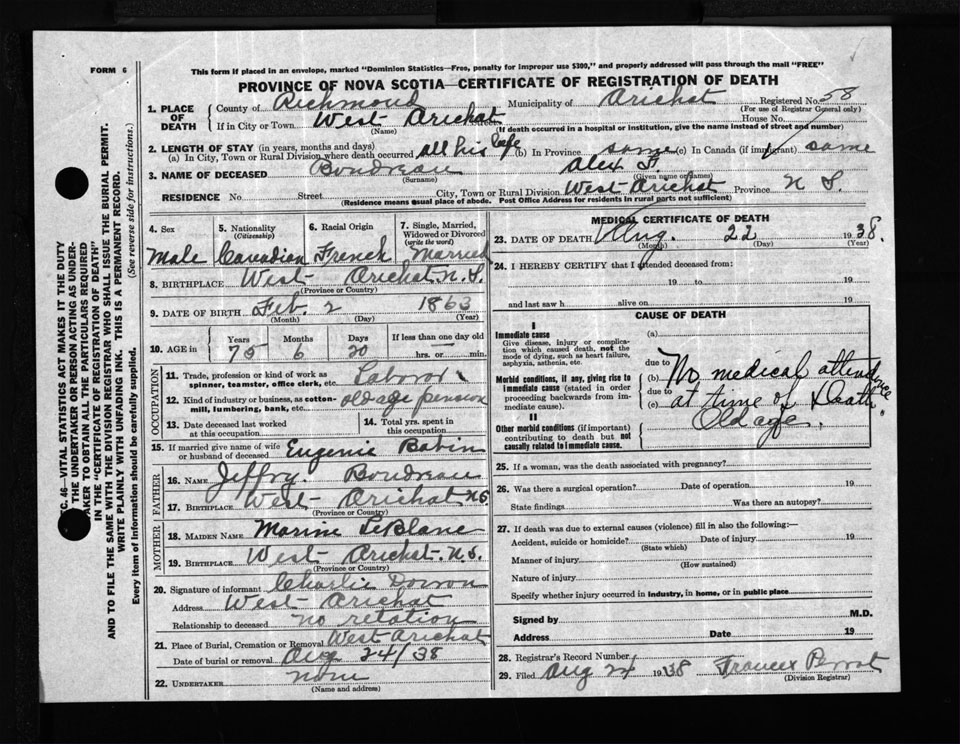 FORM 6
This form if placed in an envelope, marked "Dominion Statistics—Free, penalty for improper use $300," and properly addressed will pass through the mail "FREE"
PROVINCE OF NOVA SCOTIA—CERTIFICATE OF REGISTRATION OF DEATH
1. PLACE OF DEATH County of Richmond Municipality of Arichat Registered No. 58
(For use of Registrar General only)
If in City or Town West Arichat Street House No.
(Name) (If death occurred in a hospital or institution, give the name instead of street and number)
2. LENGTH OF STAY (in years, months and days)
(a) In City, Town or Rural Division where death occurred all his life (b) In Province same (c) In Canada (if immigrant) same
3. NAME OF DECEASED Boudreau Alex F.
(Surname) (Given name or names)
RESIDENCE No. Street City, Town or Rural Division West Arichat Province N S.
(Residence means usual place of abode. Post Office Address for residents in rural parts not sufficient)
4. Sex 5. Nationality (Citizenship) 6. Racial Origin 7. Single, Married, Widowed or Divorced (write the word)
Male Canadian French Married
8. BIRTHPLACE West Arichat N.S.
(Province or Country)
9. DATE OF BIRTH Feb. 2 1863
(Month) (Day) (Year)
10. AGE in Years Months Days If less than one day old
75 6 20 hrs. or min.
OCCUPATION
11. Trade, profession or kind of work as spinner, teamster, office clerk, etc. Laborer
12. Kind of industry or business, as cotton-mill, lumbering, bank, etc. old age pension
13. Date deceased last worked at this occupation
14. Total yrs. spent in this occupation
15. If married give name of wife or husband of deceased Eugenie Babin
FATHER
16. NAME Jeffry. Boudreau
17. BIRTHPLACE West Arichat N.S.
(Province or Country)
MOTHER
18. MAIDEN NAME LeBlanc
19. BIRTHPLACE West Arichat. N.S.
(Province or Country)
20. Signature of informant Charlie
Address West Arichat
Relationship to deceased no relation
21. Place of Burial, Cremation or Removal West Arichat
Date of burial or removal Aug 24/38
22. UNDERTAKER none
(Name and address)
MEDICAL CERTIFICATE OF DEATH
23. DATE OF DEATH Aug. 22 1938.
(Month) (Day) (Year)
24. I HEREBY CERTIFY that I attended deceased from:
19 to 19
and last saw h alive on 19
CAUSE OF DEATH
I
Immediate cause
Give disease, injury or complication which caused death, not the mode of dying, such as heart failure, asphyxia, asthenia, etc.
(a)
due to
Morbid conditions, if any, giving rise to immediate cause (stated in order proceeding backwards from immediate cause).
(b) No medical attendance
due to
(c) at time of Death.
II
Other morbid conditions (if important) contributing to death but not causally related to immediate cause.
Old age.
25. If a woman, was the death associated with pregnancy?
26. Was there a surgical operation? Date of operation 19
State findings Was there an autopsy?
27. If death was due to external causes (violence) fill in also the following:—
Accident, suicide or homicide? Date of injury 19
(State which)
Manner of injury
(How sustained)
Nature of injury
Specify whether injury occurred in industry, in home, or in public place
Signed by M.D.
Address Date 19
28. Registrar's Record Number
29. Filed Aug 24 1938
(Division Registrar)
C. 46—VITAL STATISTICS ACT MAKES IT THE DUTY
THE UNDERTAKER OR PERSON ACTING AS UNDER-
AKER TO OBTAIN ALL THE PARTICULARS REQUIRED
IN THE "CERTIFICATE OF REGISTRATION OF DEATH"
AND TO FILE THE SAME WITH THE DIVISION REGISTRAR WHO SHALL ISSUE THE BURIAL PERMIT.
WRITE PLAINLY WITH UNFADING INK. THIS IS A PERMANENT RECORD.
Every item of Information should be carefully supplied. (See reverse side for instructions.)